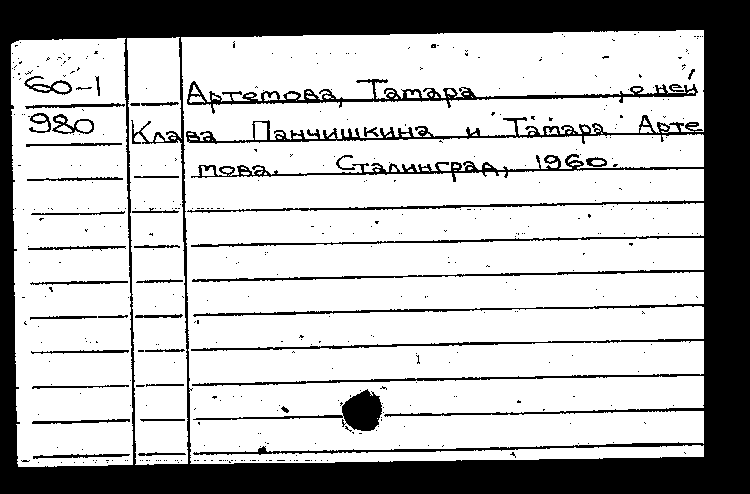 60-1 Артемова, Тамара , о ней
980 Клава Панчишкина и Тамара Арте
мова. Сталинград, 1960.